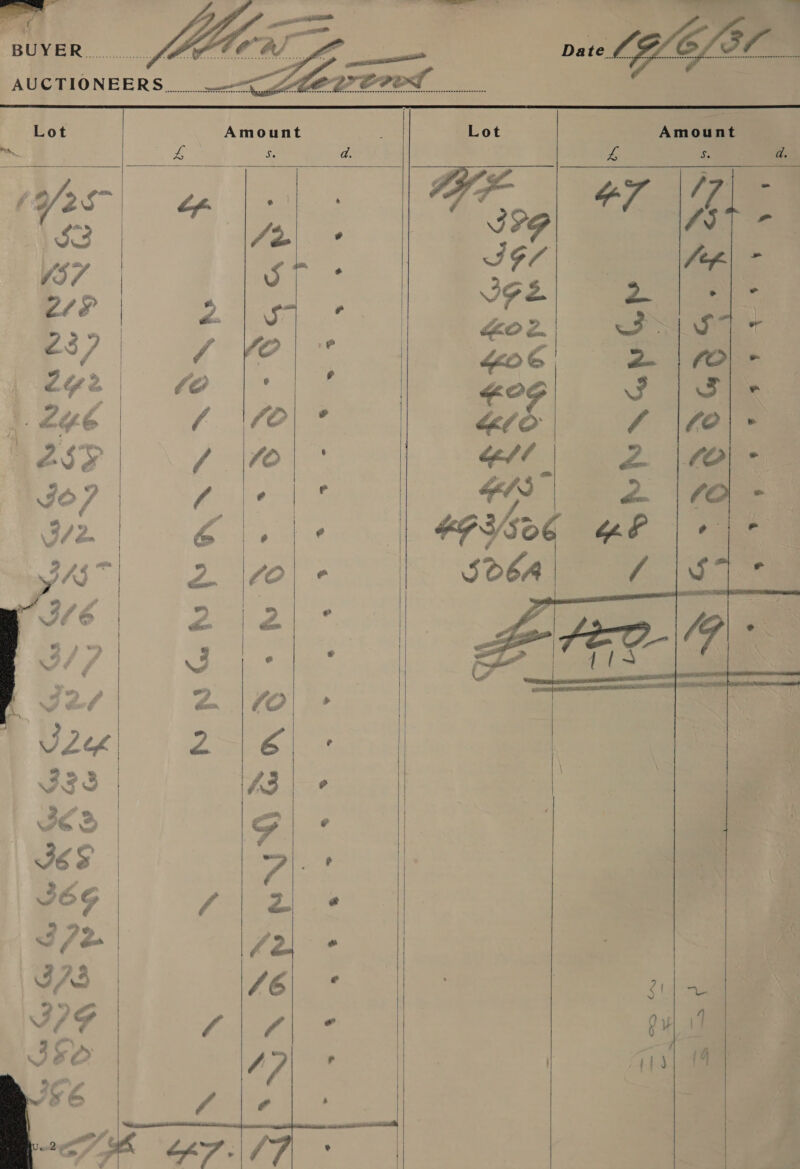 BUYER
Date 19/6/31
AUCTIONEERS Stevens
Lot Amount
£ s. d.
19/25 4 . .
53 12 .
157 5 .
218 2 5 .
237 1 10 .
242 10 . .
246 1 10 .
258 1 10 .
307 1 . .
312 6 . .
315 2 10 .
316 2 2 .
317 3 . .
321 2 10 .
324 2 6 .
333 13 .
363 9 .
368 7 .
369 1 2 .
372 12 .
373 16 .
379 1 1 .
380 17 .
386 1 . .
47 . 17 .
Lot Amount
£ s. d.
47 17 -
389 15 -
391 14 -
392 2 . .
402 3 5 -
406 2 10 -
409 3 3 -
410 1 10 -
411 2 10 -
415 2 10 -
493/506 48 . .
506A 1 5 .
£ 120 - 19 .
115
31 ~
84 19
115 19